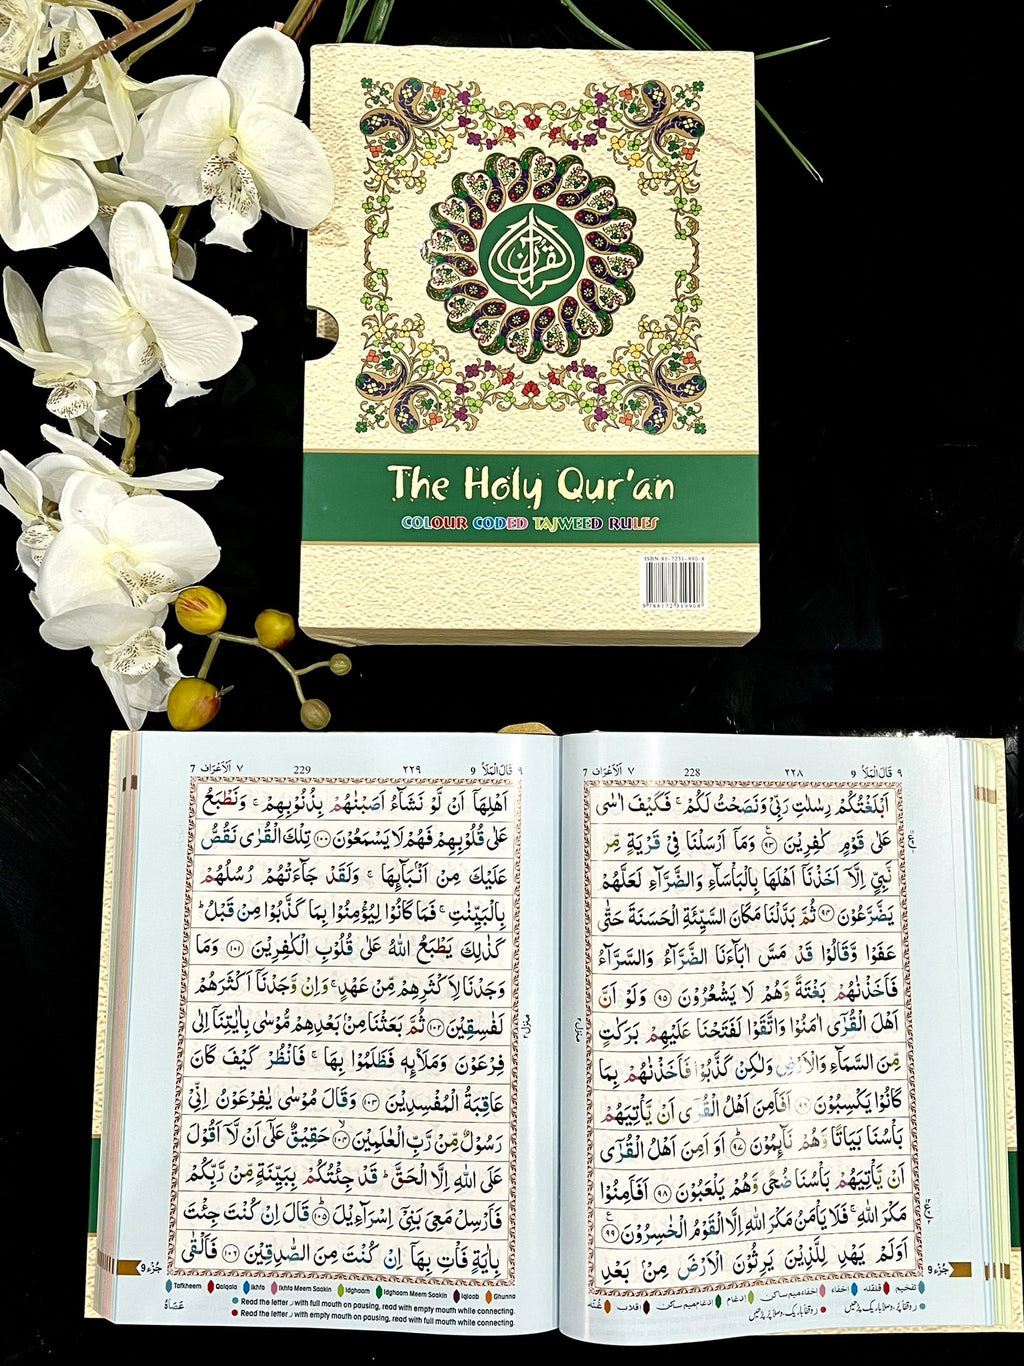 القرآن
The Holy Qur'an
COLOUR CODED TAJWEED RULES
ISBN 81-7231-990-8
9 788172 319908
٩ قَالَ الْمَلَاُ 9 ٢٢٨ 228 ٧ اَلْاَعْرَاف 7
اَبْلَغْتُكُمْ رِسٰلٰتِ رَبِّيْ وَنَصَحْتُ لَكُمْ ۚ فَكَيْفَ اٰسٰى
عَلٰى قَوْمٍ كٰفِرِيْنَ ﴿٩٣﴾ وَمَآ اَرْسَلْنَا فِيْ قَرْيَةٍ مِّنْ
نَّبِيٍّ اِلَّآ اَخَذْنَآ اَهْلَهَا بِالْبَاْسَآءِ وَالضَّرَّآءِ لَعَلَّهُمْ
يَضَّرَّعُوْنَ ﴿٩٤﴾ ثُمَّ بَدَّلْنَا مَكَانَ السَّيِّئَةِ الْحَسَنَةَ حَتّٰى
عَفَوْا وَّقَالُوْا قَدْ مَسَّ اٰبَآءَنَا الضَّرَّآءُ وَالسَّرَّآءُ
فَاَخَذْنٰهُمْ بَغْتَةً وَّهُمْ لَا يَشْعُرُوْنَ ﴿٩٥﴾ وَلَوْ اَنَّ
اَهْلَ الْقُرٰٓى اٰمَنُوْا وَاتَّقَوْا لَفَتَحْنَا عَلَيْهِمْ بَرَكٰتٍ
مِّنَ السَّمَآءِ وَالْاَرْضِ وَلٰكِنْ كَذَّبُوْا فَاَخَذْنٰهُمْ بِمَا
كَانُوْا يَكْسِبُوْنَ ﴿٩٦﴾ اَفَاَمِنَ اَهْلُ الْقُرٰٓى اَنْ يَّاْتِيَهُمْ
بَاْسُنَا بَيَاتًا وَّهُمْ نَآئِمُوْنَ ﴿٩٧﴾ اَوَ اَمِنَ اَهْلُ الْقُرٰٓى
اَنْ يَّاْتِيَهُمْ بَاْسُنَا ضُحًى وَّهُمْ يَلْعَبُوْنَ ﴿٩٨﴾ اَفَاَمِنُوْا
مَكْرَ اللّٰهِ ۚ فَلَا يَاْمَنُ مَكْرَ اللّٰهِ اِلَّا الْقَوْمُ الْخٰسِرُوْنَ ﴿٩٩﴾
اَوَلَمْ يَهْدِ لِلَّذِيْنَ يَرِثُوْنَ الْاَرْضَ مِنْۢ بَعْدِ
جُزء 9
تفخیم قلقلہ اخفاء اخفاء میم ساکن ادغام ادغام میم ساکن اقلاب غُنّہ
٩ قَالَ الْمَلَاُ 9 ٢٢٩ 229 ٧ اَلْاَعْرَاف 7
اَهْلِهَآ اَنْ لَّوْ نَشَآءُ اَصَبْنٰهُمْ بِذُنُوْبِهِمْ ۚ وَنَطْبَعُ
عَلٰى قُلُوْبِهِمْ فَهُمْ لَا يَسْمَعُوْنَ ﴿١٠٠﴾ تِلْكَ الْقُرٰى نَقُصُّ
عَلَيْكَ مِنْ اَنْۢبَآئِهَا ۚ وَلَقَدْ جَآءَتْهُمْ رُسُلُهُمْ
بِالْبَيِّنٰتِ ۚ فَمَا كَانُوْا لِيُؤْمِنُوْا بِمَا كَذَّبُوْا مِنْ قَبْلُ ؕ
كَذٰلِكَ يَطْبَعُ اللّٰهُ عَلٰى قُلُوْبِ الْكٰفِرِيْنَ ﴿١٠١﴾ وَمَا
وَجَدْنَا لِاَكْثَرِهِمْ مِّنْ عَهْدٍ ۚ وَاِنْ وَّجَدْنَآ اَكْثَرَهُمْ
لَفٰسِقِيْنَ ﴿١٠٢﴾ ثُمَّ بَعَثْنَا مِنْۢ بَعْدِهِمْ مُّوْسٰى بِاٰيٰتِنَآ اِلٰى
فِرْعَوْنَ وَمَلَا۟ئِهٖ فَظَلَمُوْا بِهَا ۚ فَانْظُرْ كَيْفَ كَانَ
عَاقِبَةُ الْمُفْسِدِيْنَ ﴿١٠٣﴾ وَقَالَ مُوْسٰى يٰفِرْعَوْنُ اِنِّيْ
رَسُوْلٌ مِّنْ رَّبِّ الْعٰلَمِيْنَ ﴿١٠٤﴾ حَقِيْقٌ عَلٰٓى اَنْ لَّآ اَقُوْلَ
عَلَى اللّٰهِ اِلَّا الْحَقَّ ؕ قَدْ جِئْتُكُمْ بِبَيِّنَةٍ مِّنْ رَّبِّكُمْ
فَاَرْسِلْ مَعِيَ بَنِيْٓ اِسْرَآءِيْلَ ﴿١٠٥﴾ قَالَ اِنْ كُنْتَ جِئْتَ
بِاٰيَةٍ فَاْتِ بِهَآ اِنْ كُنْتَ مِنَ الصّٰدِقِيْنَ ﴿١٠٦﴾ فَاَلْقٰى
جُزء 9
Tafkheem Qalqala Ikhfa Ikhfa Meem Saakin Idghaam Idghaam Meem Saakin Iqlaab Ghunna
Read the letter ر with full mouth on pausing, read with empty mouth while connecting.
Read the letter ر with empty mouth on pausing, read with full mouth while connecting.
عَصَاهُ